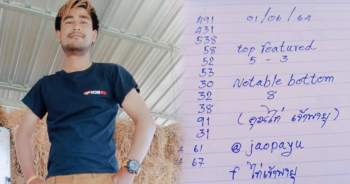 491
431
538
58
52
53
30
32
38
91
31
61
67
01/06/64
top featured
5 - 3
Notable bottom
8
(คุมไก่ เจ้าพายุ)
@ jaopayu
f ไก่เจ้าพายุ